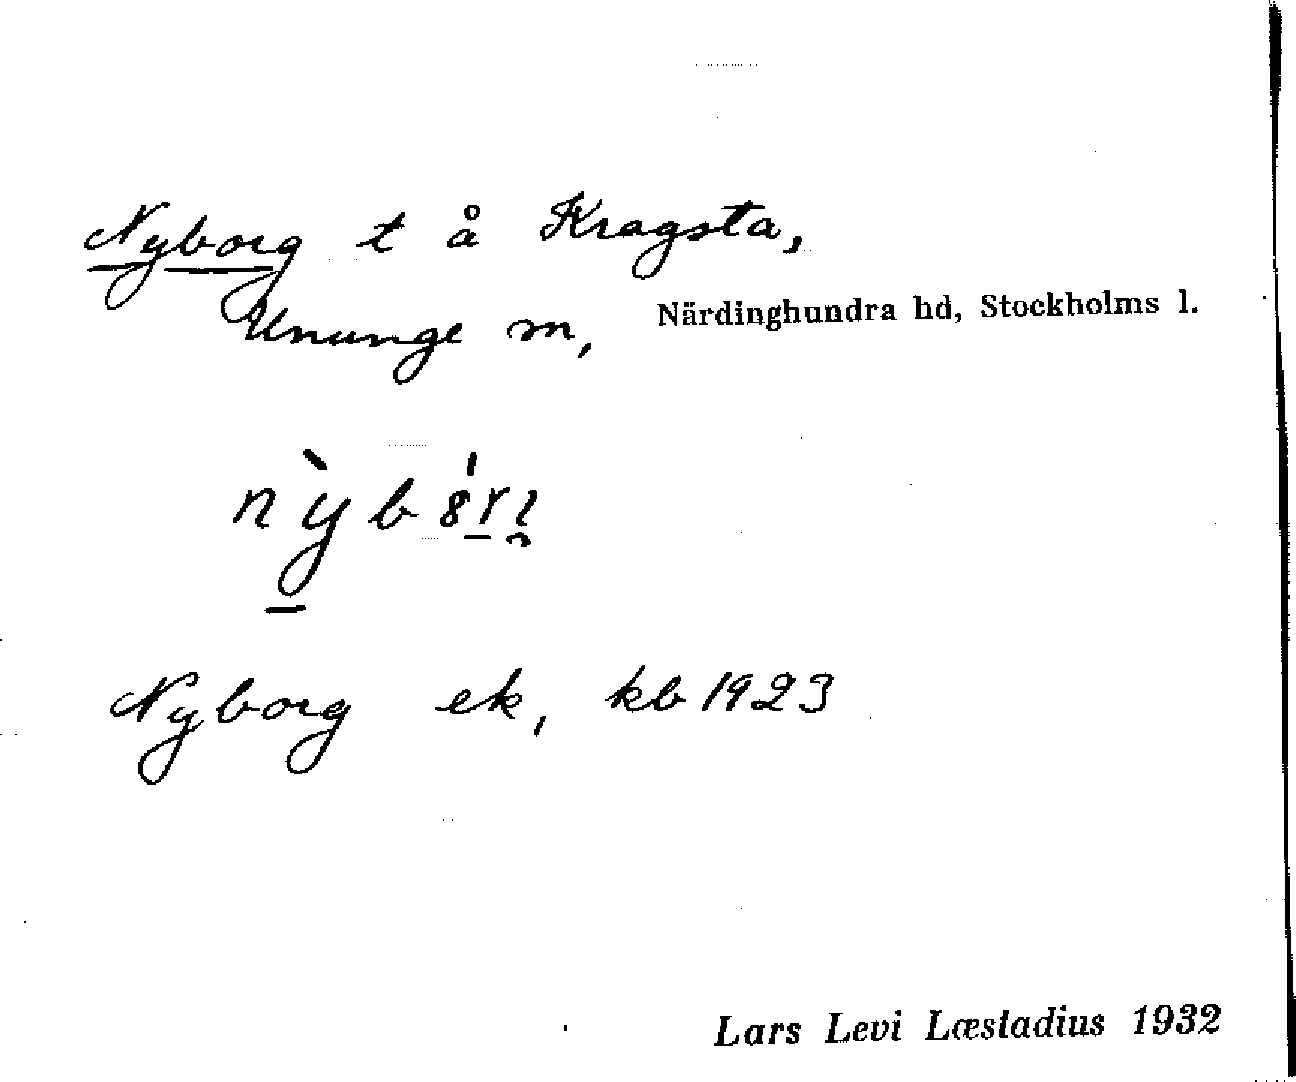 Nyborg t å Kragsta,
Ununge m, Närdinghundra hd, Stockholms l.
Nyborg ek, kb 1923
Lars Levi Læstadius 1932